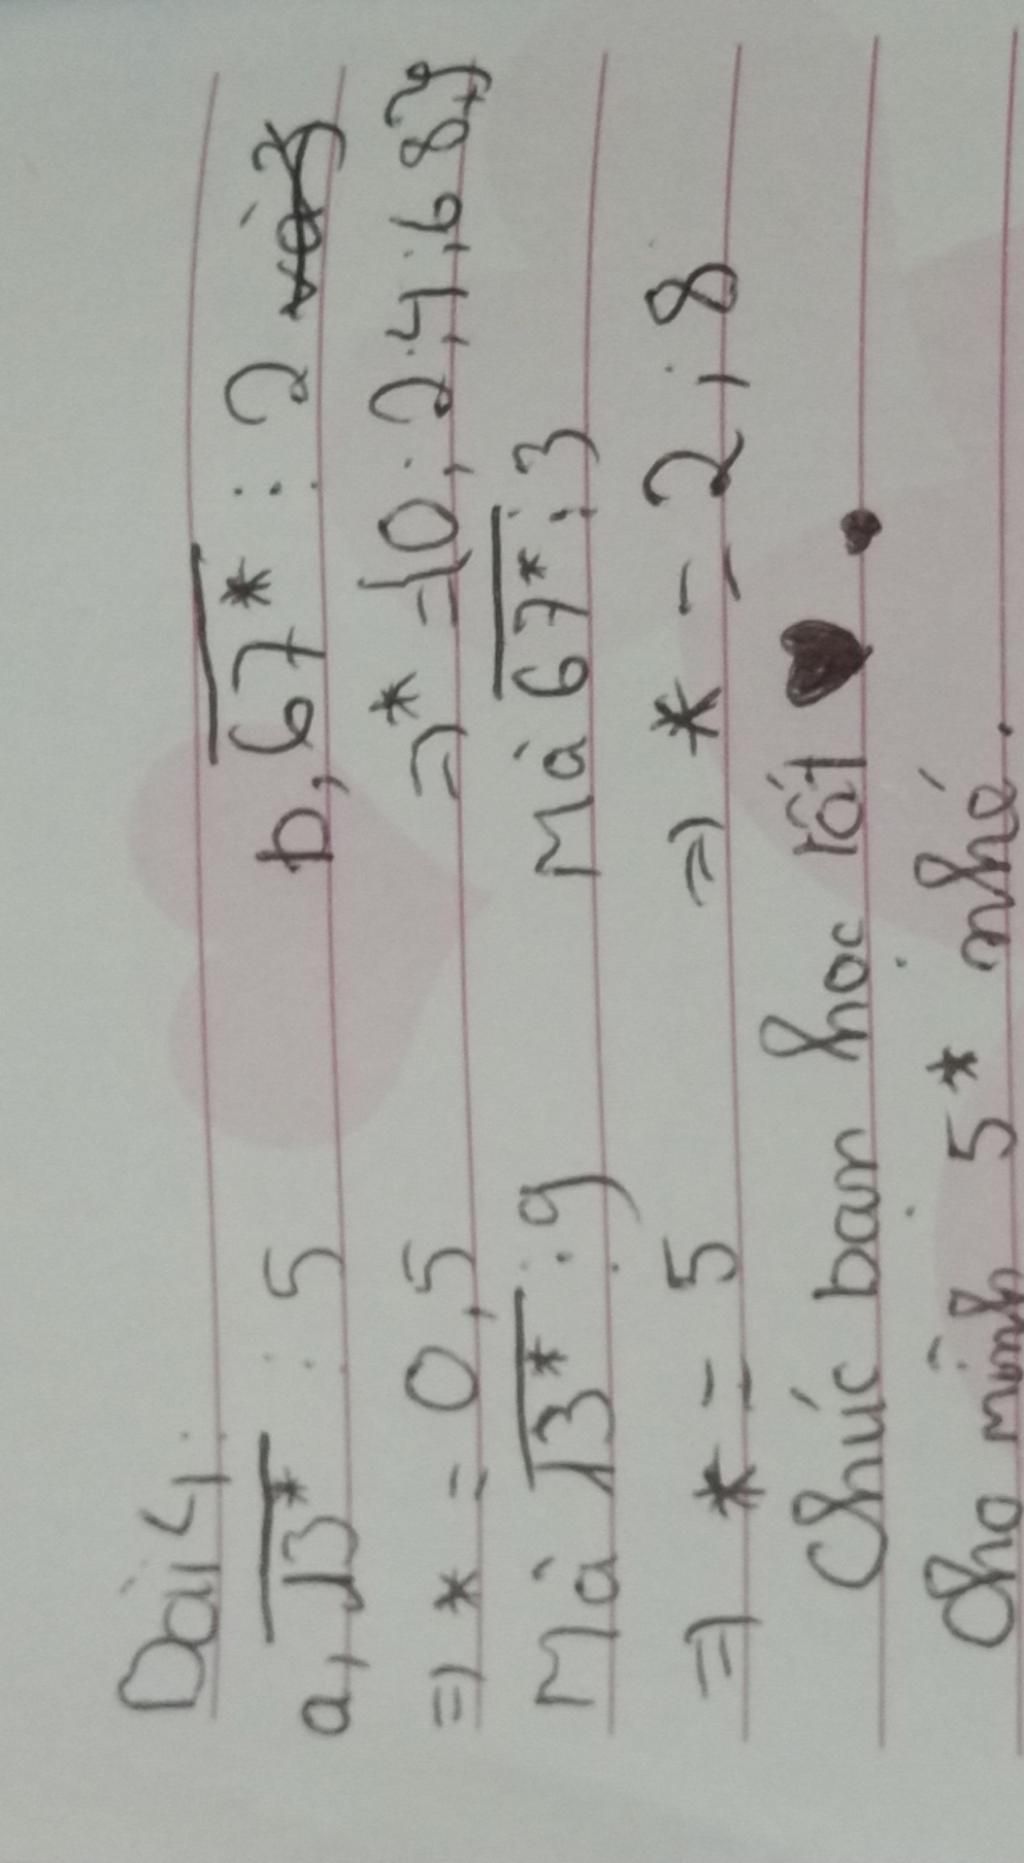 Bài 4:
a, 13* ⋮ 5 b, 67* ⋮ 2
=> * = 0,5 => * = {0; 2; 4; 6; 8}
Mà 13* ⋮ 9 Mà 67* ⋮ 3
=> * = 5 => * = 2; 8
Chúc bạn học tốt ♥.
Cho mình 5* nhé.